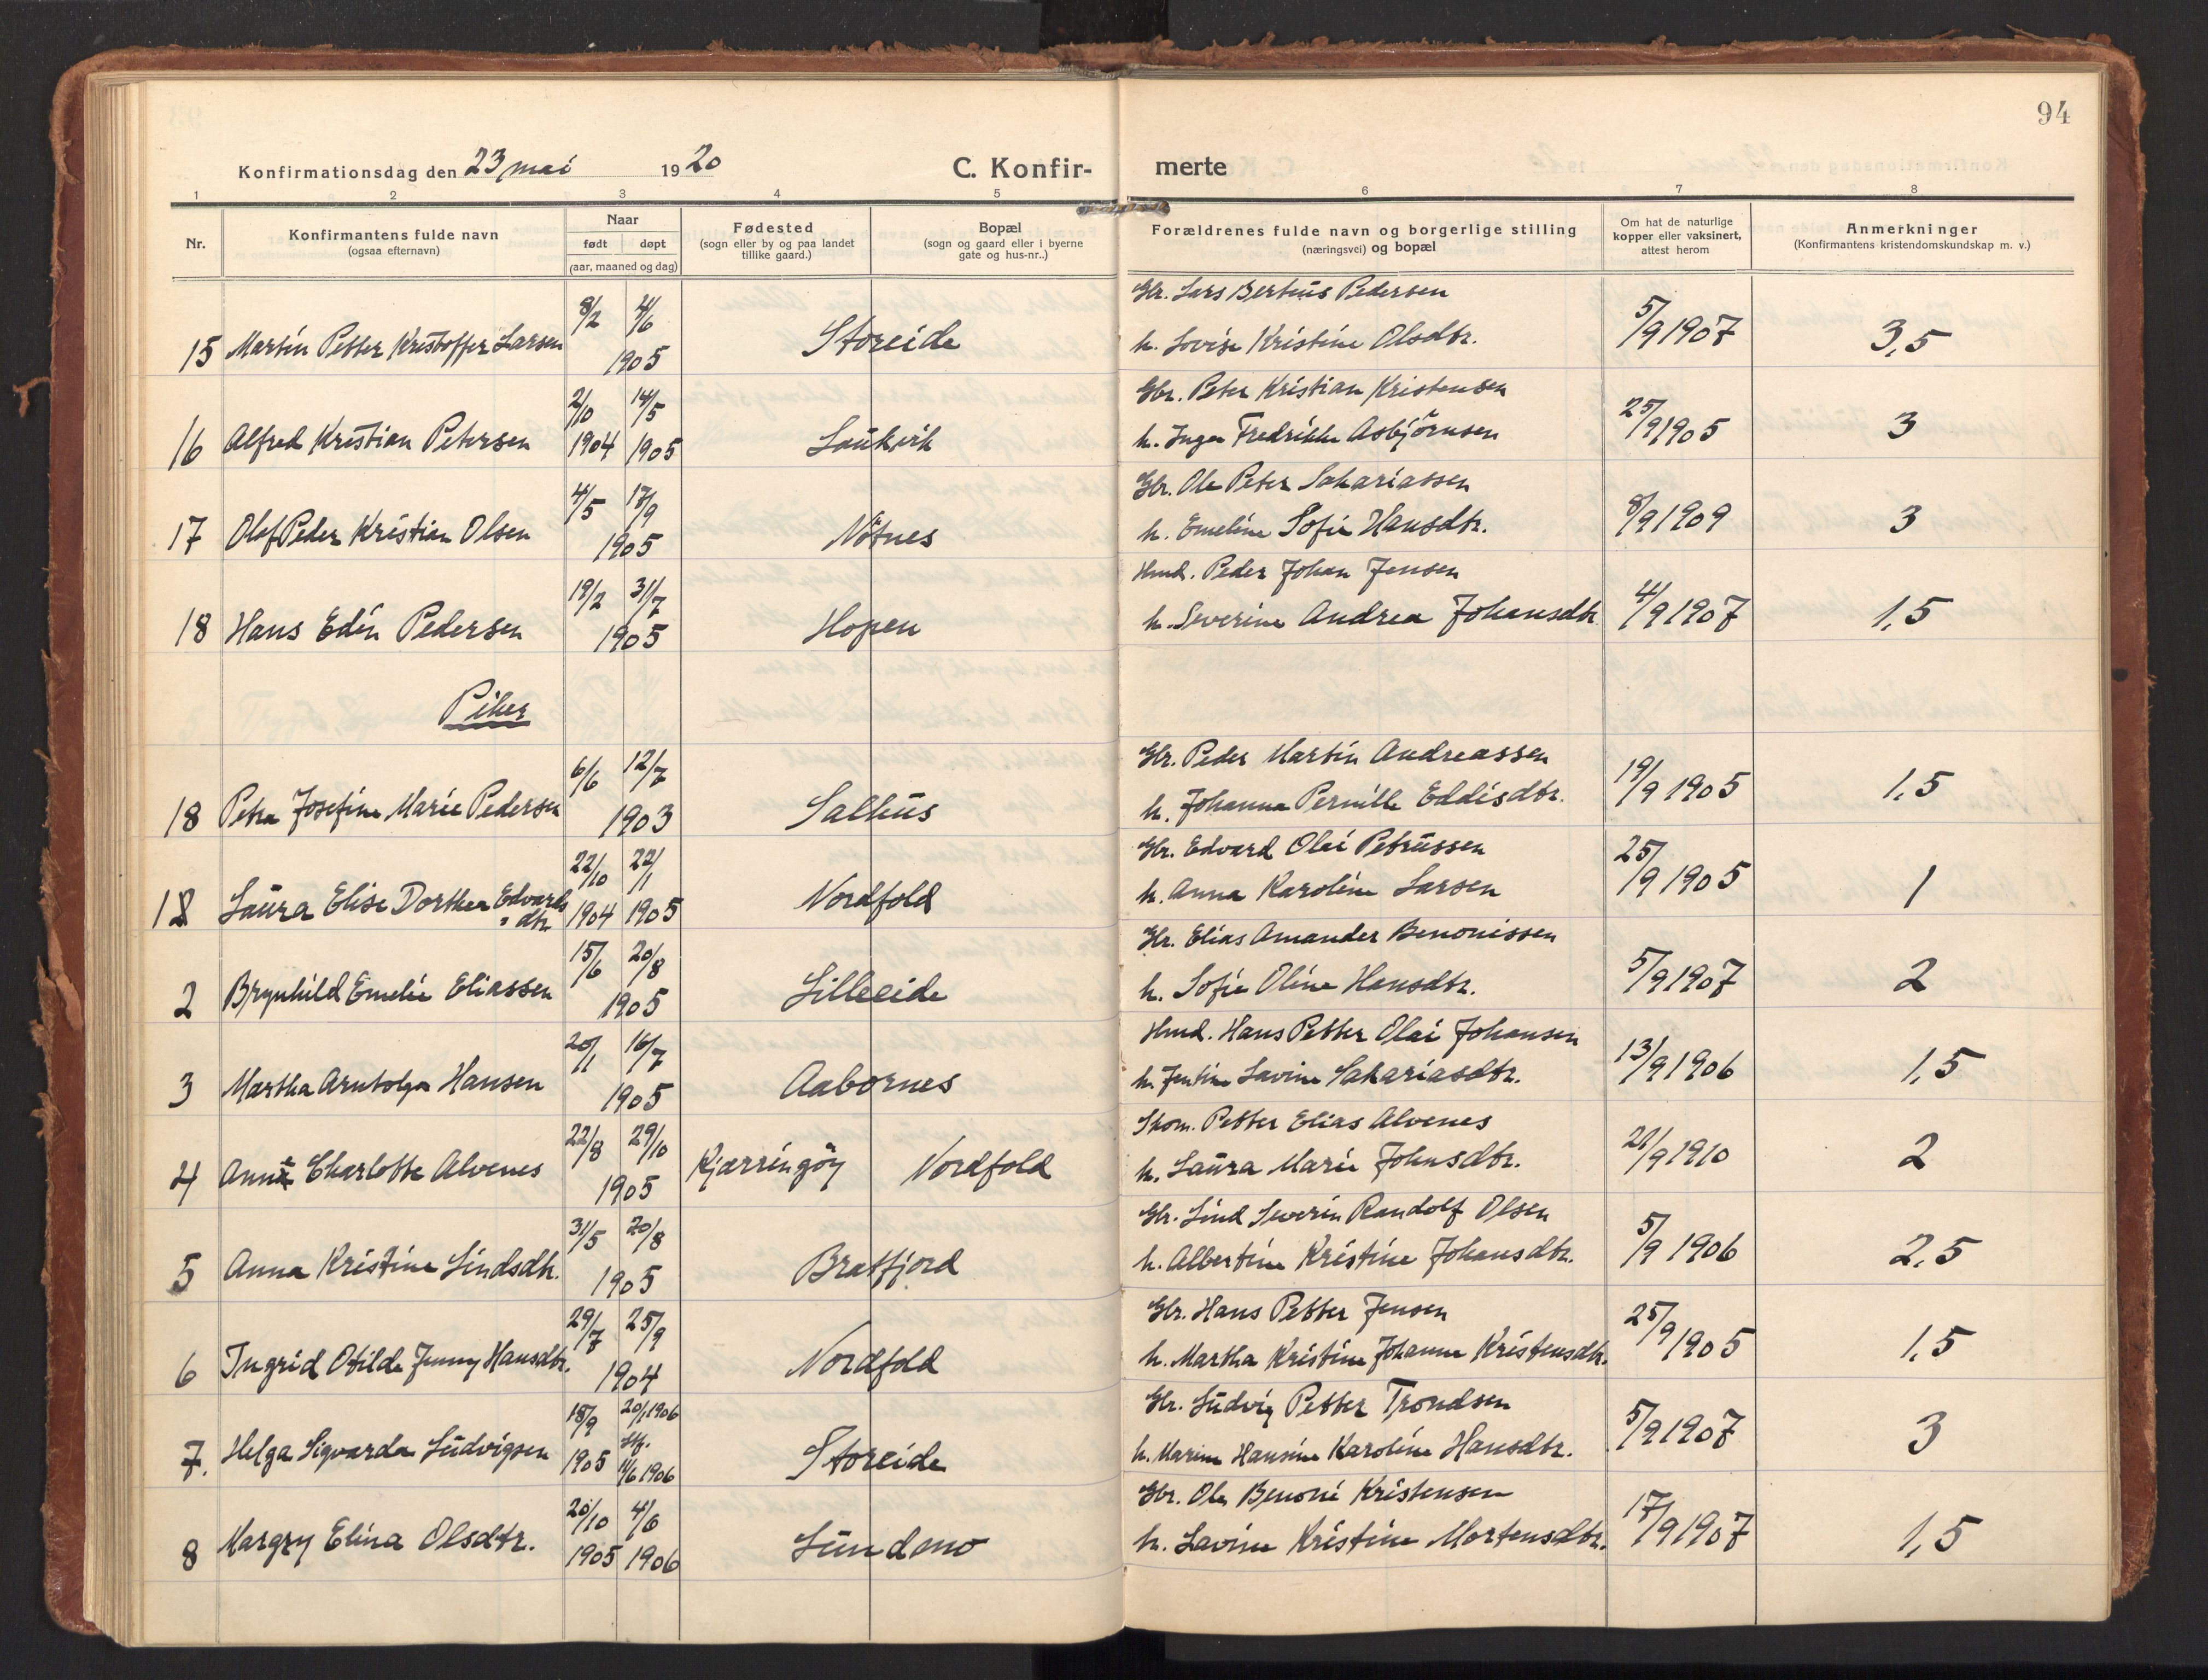 94
Konfirmationsdag den 23 mai 1920 C. Konfir- merte
1 2 3 4 5 6 7 8
Nr.
Konfirmantens fulde navn
(ogsaa efternavn)
Naar
født døpt
(aar, maaned og dag)
Fødested
(sogn eller by og paa landet
tillike gaard.)
Bopæl
(sogn og gaard eller i byerne
gate og hus-nr..)
Forældrenes fulde navn og borgerlige stilling
(næringsvei) og bopæl
Om hat de naturlige
kopper eller vaksinert,
attest herom
Anmerkninger
(Konfirmantens kristendomskundskap m. v.)
8/2 4/6 Gbr. Lars Berteus Pedersen
15 Martin Petter Kristoffer Larsen 1905 Storeide h. Lovise Kristine Olsdtr. 5/9 1907 3,5
2/10 14/5 Gbr. Peter Kristian Kristensen
16 Alfred Kristian Petersen 1904 1905 Laukvik h. Inger Fredrikke Asbjørnsen 25/9 1905 3
4/5 17/9 Gbr. Ole Peter Sakariassen
17 Olef Peder Kristian Olsen 1905 Nötnes h. Emeline Sofie Hansdtr. 8/9 1909 3
19/2 31/7 Hmd. Peder Johan Jensen
18 Hans Edin Pedersen 1905 Hopen h. Severine Andrea Johansdtr. 4/9 1907 1,5
Piker
6/6 12/7 Gbr. Peder Martin Andreassen
18 Petra Josefine Marie Pedersen 1903 Salhus h. Johanna Pernille Eddisdtr. 19/9 1905 1,5
22/10 22/1 Gbr. Edvard Olai Petrussen
1 Laura Elise Dorthea Edvards
=dtr. 1904 1905 Nordfold h. Anna Karoline Larsen 25/9 1905 1
15/6 20/8 Gbr. Elias Amander Benonissen
2 Brynhild Emelie Eliassen 1905 Lilleeide h. Sofie Oline Hansdtr. 5/9 1907 2
20/1 16/7 Hmd. Hans Petter Olai Johansen
3 Martha Arntolga Hansen 1905 Aabornes h. Jentine Lavine Sakariasdtr. 13/9 1906 1,5
22/8 29/10 Skom. Petter Elias Alvenes
4 Anne Charlotte Alvenes 1905 Kjærringöy Nordfold h. Laura Marie Johnsdtr. 21/9 1910 2
31/5 20/8 Gbr. Lind Severin Randolf Olsen
5 Anna Kristine Lindsdtr. 1905 Bratfjord h. Albertine Kristine Johansdtr. 5/9 1906 2,5
29/7 25/9 Gbr. Hans Petter Jensen
6 Ingrid Otilde Jenny Hansdtr. 1904 Nordfold h. Martha Kristine Johanne Kristensdtr. 25/9 1905 1,5
18/9 20/1 1906 Gbr. Ludvig Petter Trondsen
7. Helga Sigvarda Ludvigsen 1905 stf. 11/6 1906 Storeide h. Marine Hansine Karoline Hansdtr. 5/9 1907 3
20/10 4/6 Gbr. Ole Benoni Kristensen
8 Margry Elina Olsdtr. 1905 1906 Sundmo h. Lavine Kristine Mortensdtr. 17/9 1907 1,5